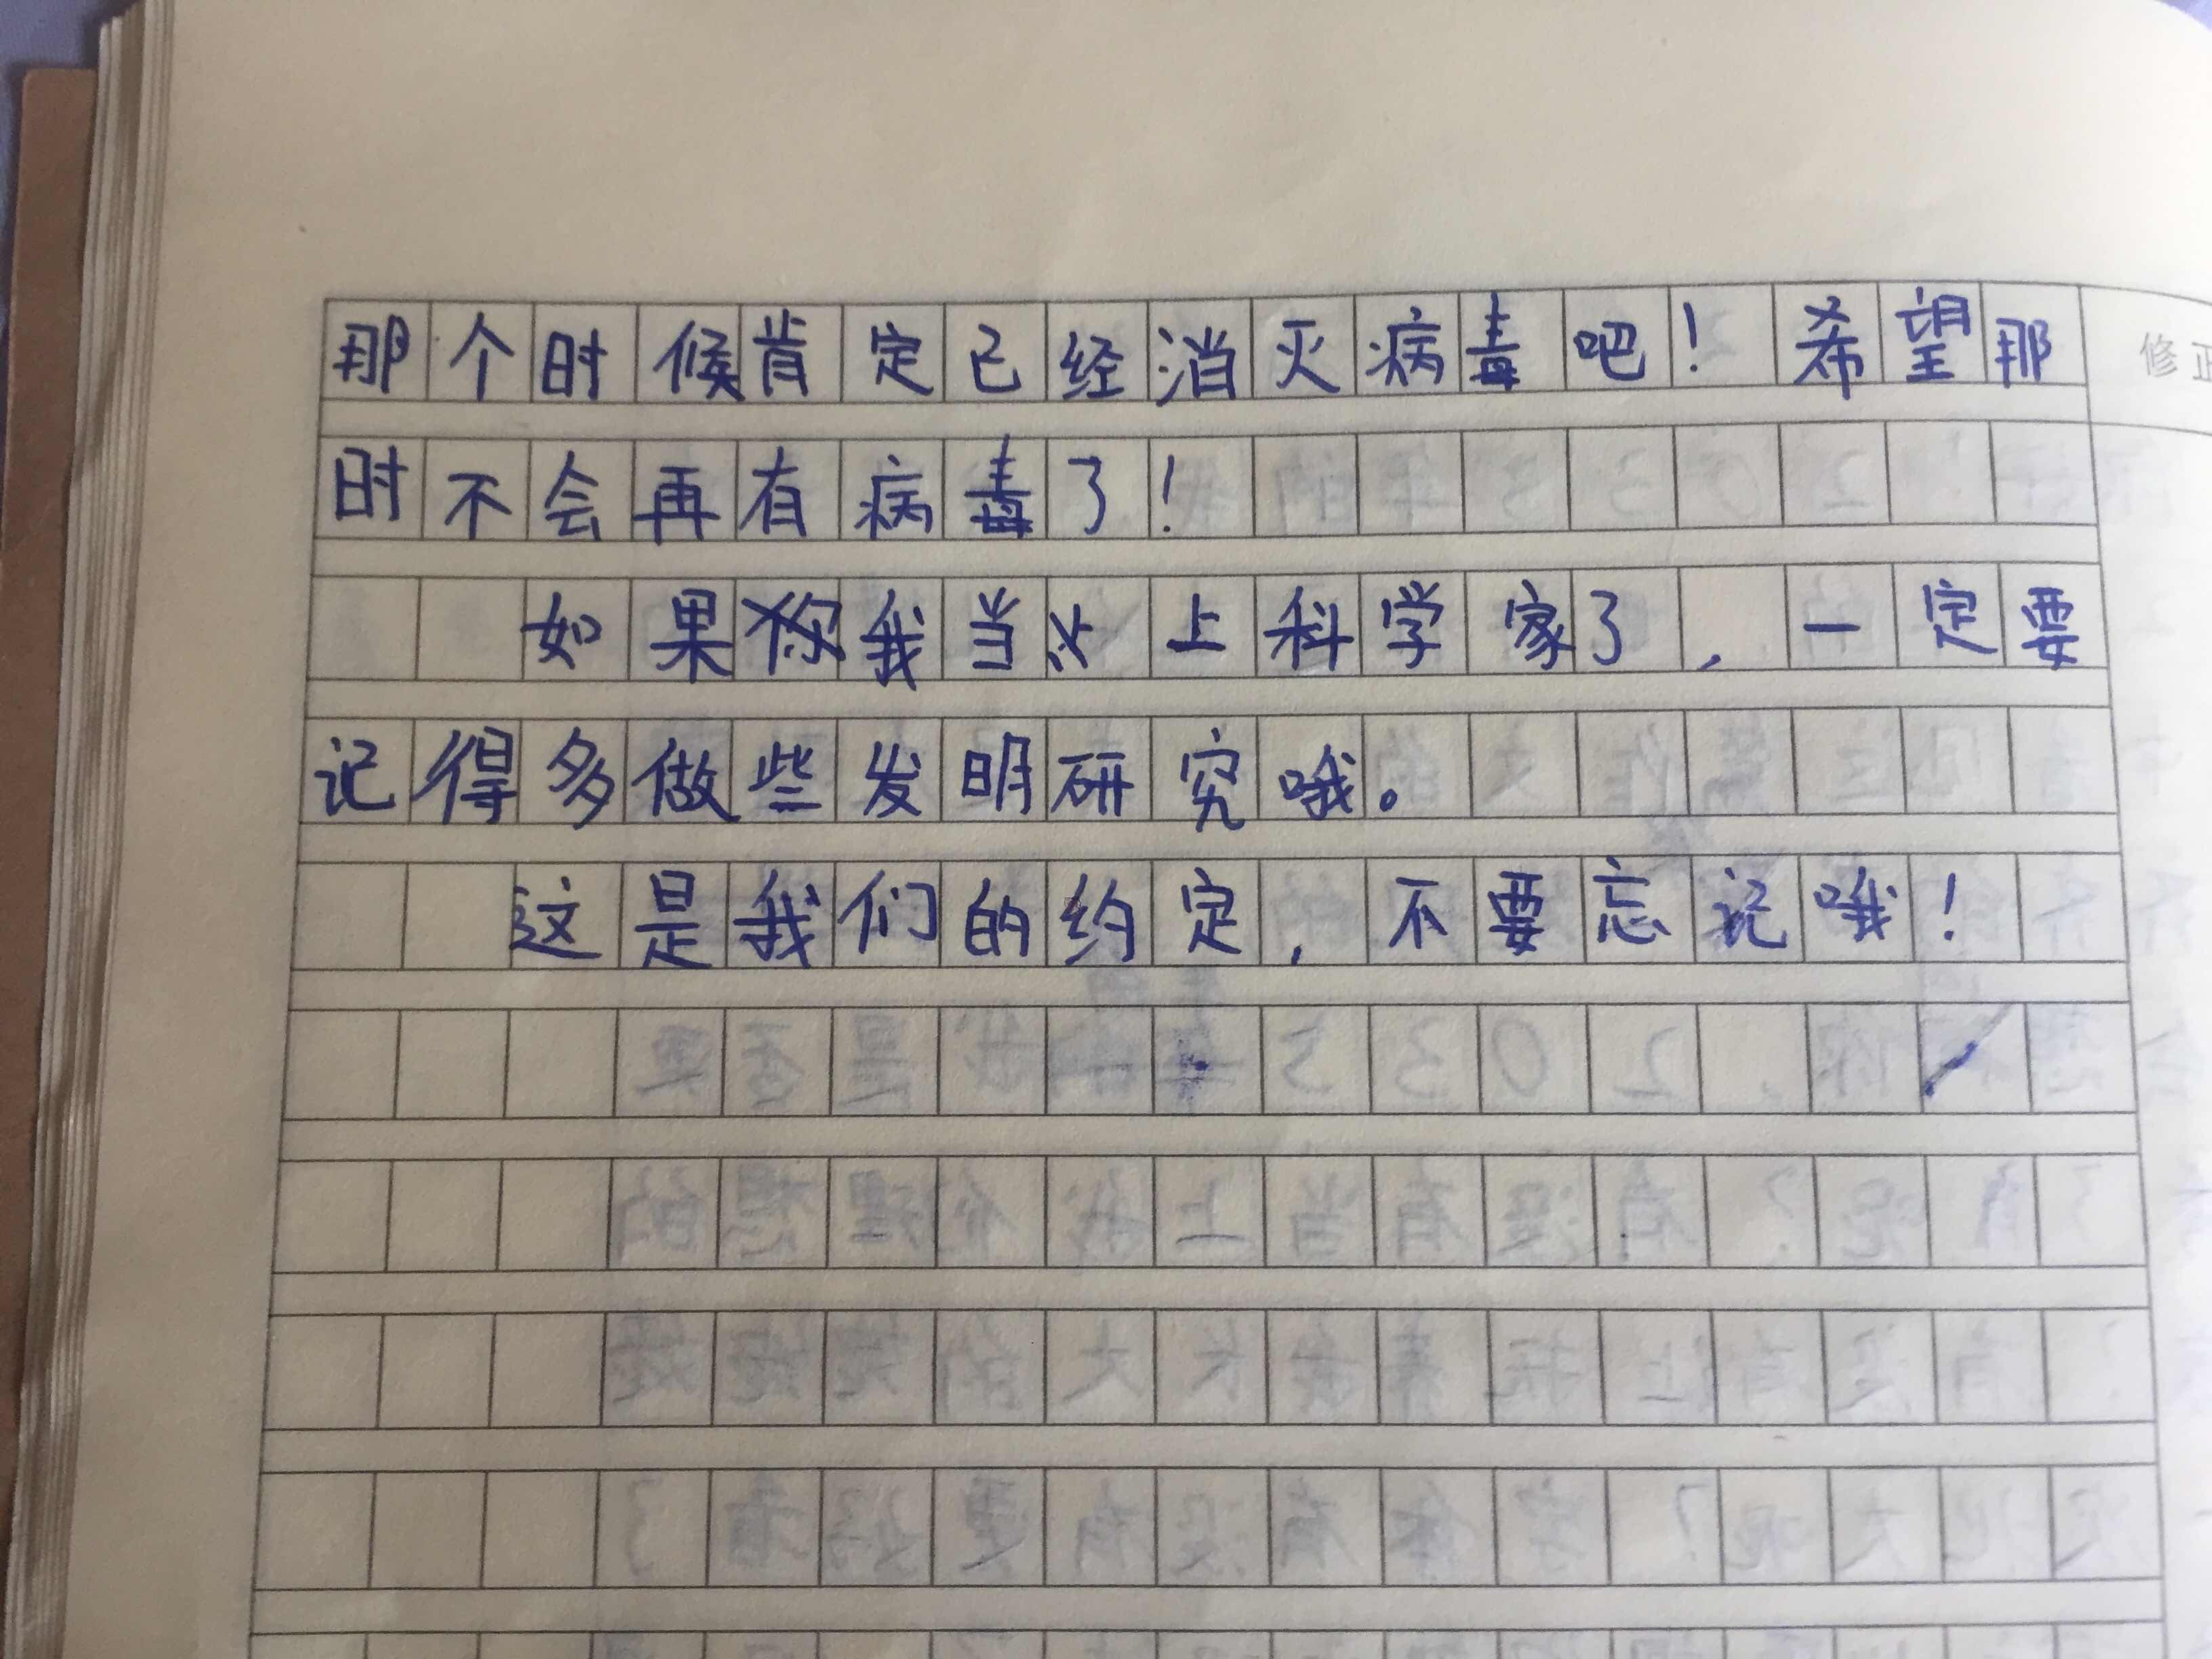 那个时候肯定已经消灭病毒吧！希望那
修正
时不会再有病毒了！
如果我当上科学家了，一定要
记得多做些发明研究哦。
这是我们的约定，不要忘记哦！